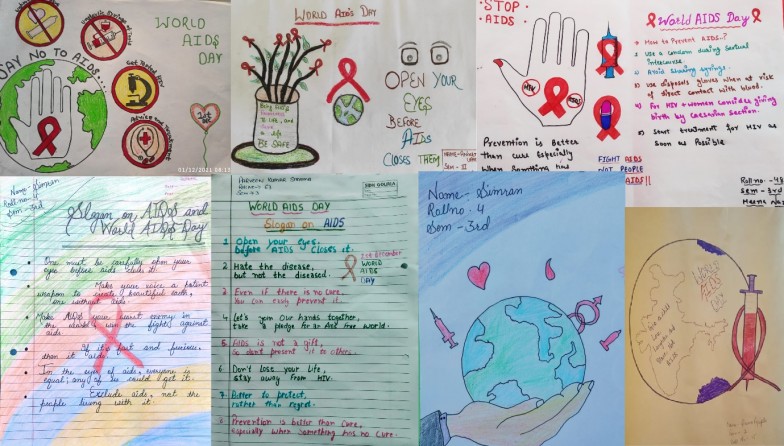 WORLD
AIDS
DAY
SAY NO TO AIDS....
Get Tested
Advice and Treatment
1st
01/12/2021 08:13
WORLD AIDS DAY
To life, and
BE SAFE
OPEN YOUR
EYES
BEFORE
AIDS
CLOSES THEM
SEM - III
STOP
AIDS
HIV
AIDS
Prevention is Better
than cure Especially
when Something has
FIGHT AIDS
NOT PEOPLE
AIDS!!
World AIDS Day
How to Prevent AIDS..?
Use a condom during sexual
intercourse.
Avoid sharing syringe.
Use disposals gloves when at rise
of direct contact with blood.
For HIV + Women consider giving
birth by caesarian section.
Start treatment for HIV as
soon as Possible
Roll no. - 48
Sem - 3rd
Name - Simran
Roll no. 4
Sem - 3rd
Slogan on AIDS and
World AIDS-Day
One must be carefully open your
eye before aids close it.
Make your voice a patent
weapon to create beautiful earth,
one without aids.
Make AIDS your worst enemy in
the world & win the fight against
aids.
If it's fast and furious,
then it aids.
In the eyes of aids, everyone is
equal; any of us could get it.
Exclude aids, not the
people living with it.
PARVEEN KUMAR SHARMA
WORLD AIDS DAY
Slogan on AIDS
1 Open your eyes,
before AIDS closes it.
2 Hate the disease,
but not the diseased.
1st December
WORLD
AIDS
DAY
3 Even if there is no cure,
You can truly prevent it.
4 Let's join our hands together,
take a pledge for an AIDS free world.
5 AIDS is not a gift,
So don't present it to others.
6 Don't lose your life,
stay away from HIV.
7 Better to protect,
rather than regret.
8 Prevention is better than cure,
Especially when something has no cure.
Name - Simran
Rollno. 4
Sem - 3rd